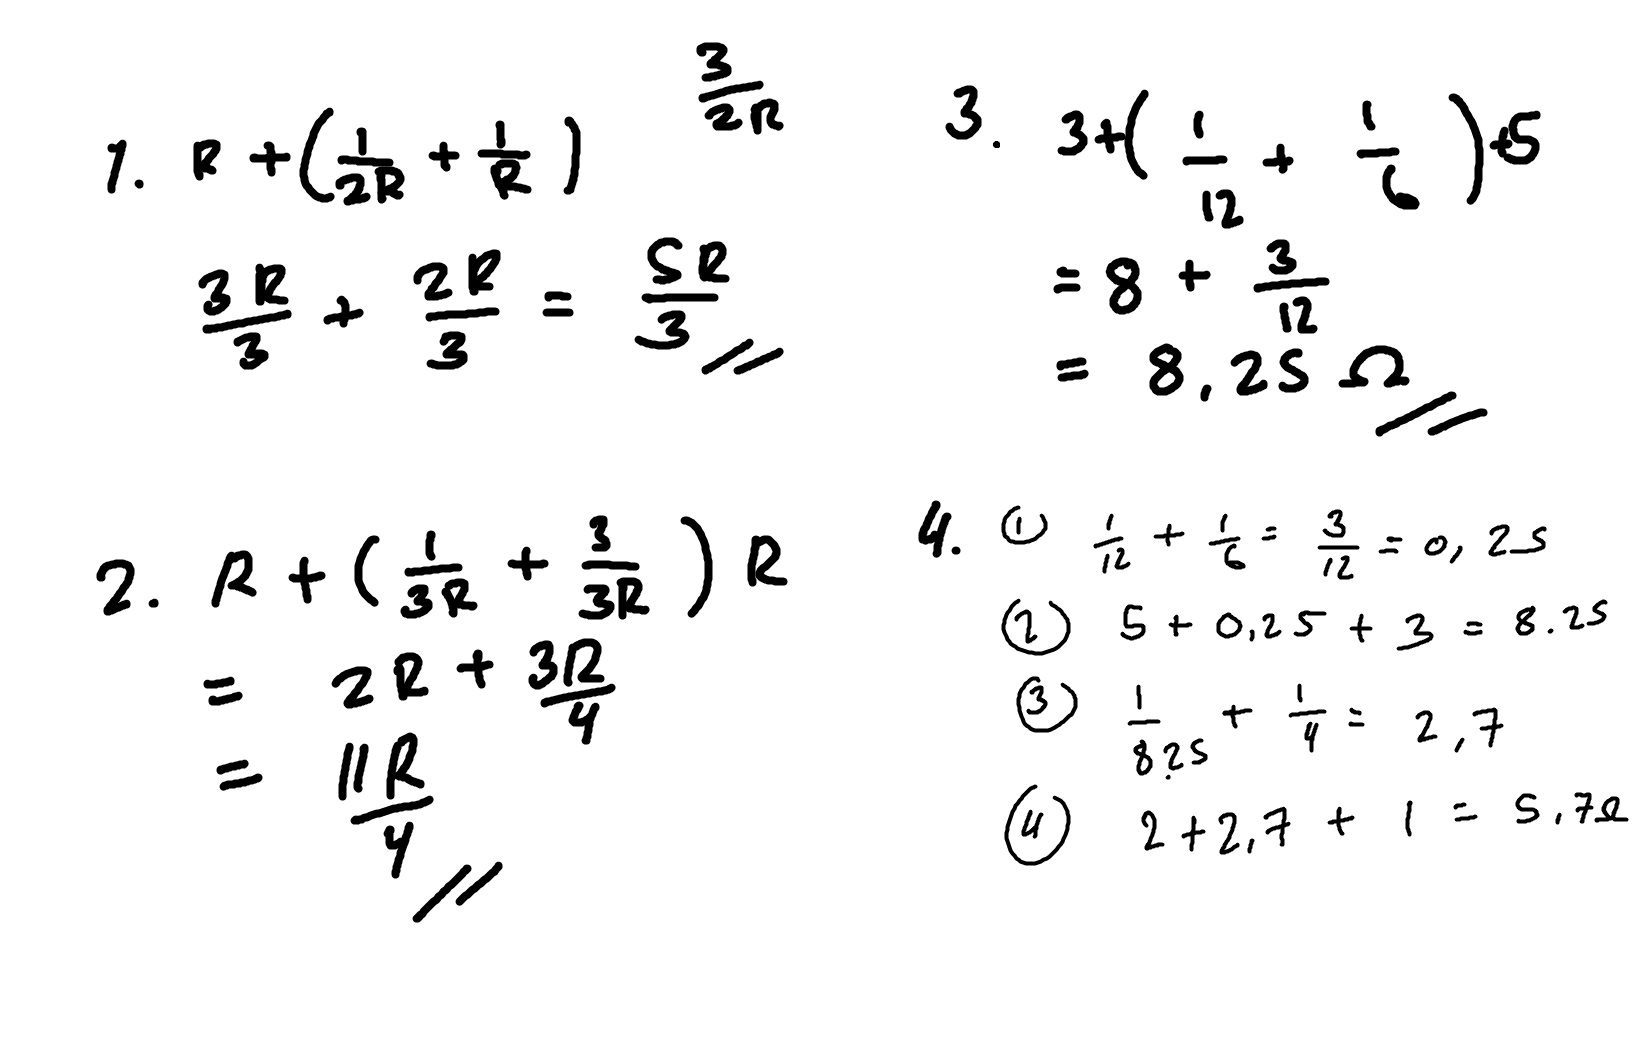 1. R + (1/2R + 1/R) 3/2R
3R/3 + 2R/3 = 5R/3 //
2. R + (1/3R + 3/3R) R
= 2R + 3R/4
= 11R/4 //
3. 3+(1/12 + 1/6)+5
= 8 + 3/12
= 8,25 Ω //
4. ① 1/12 + 1/6 = 3/12 = 0,25
② 5 + 0,25 + 3 = 8.25
③ 1/8.25 + 1/4 = 2,7
④ 2 + 2,7 + 1 = 5,7Ω